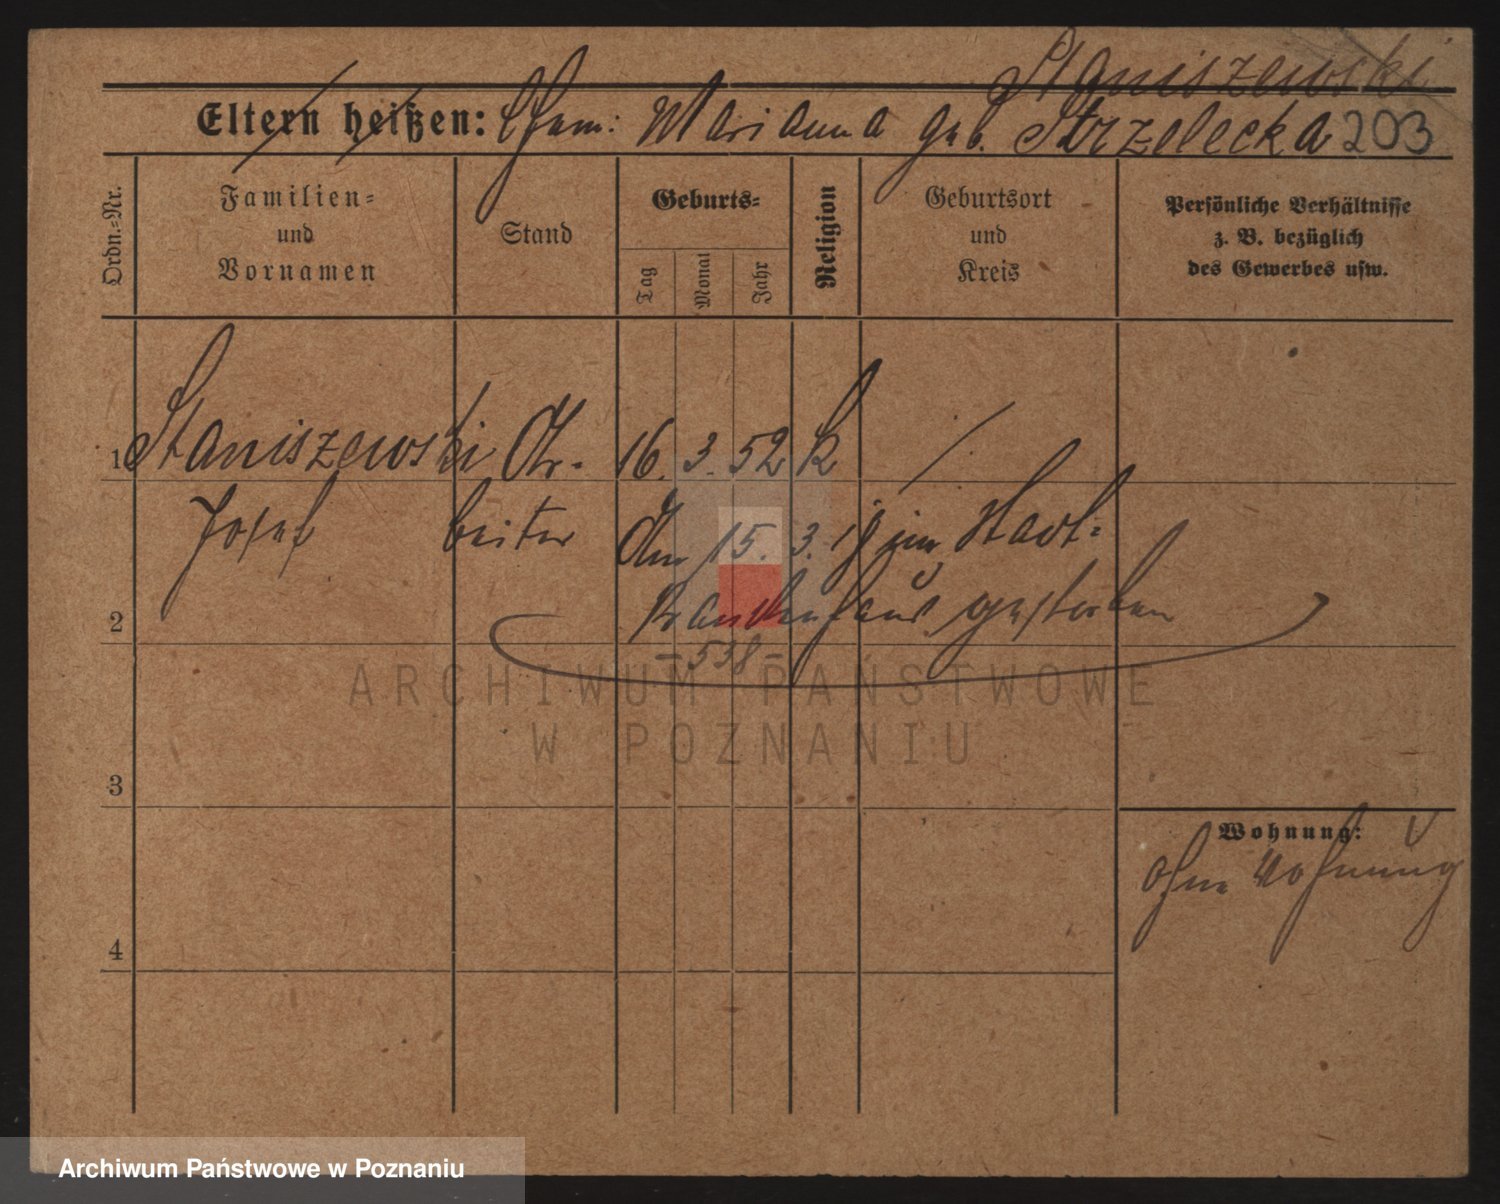 Staniszewski
Eltern heißen: Ehem: Marianna geb. Strzelecka 203
Ordn.-Nr.
Familien-
und
Vornamen
Stand
Geburts-
Tag
Monat
Jahr
Religion
Geburtsort
und
Kreis
Persönliche Verhältnisse
z. B. bezüglich
des Gewerbes usw.
1 Staniszewski Ar- 16. 3. 52 K ./.
Josef beiter Am 15. 3. 19 im Stadt-
2 krankenhaus gestorben
- 538 -
ARCHIWUM PAŃSTWOWE
W POZNANIU
3
Wohnung:
ohne Wohnung
4
Archiwum Państwowe w Poznaniu